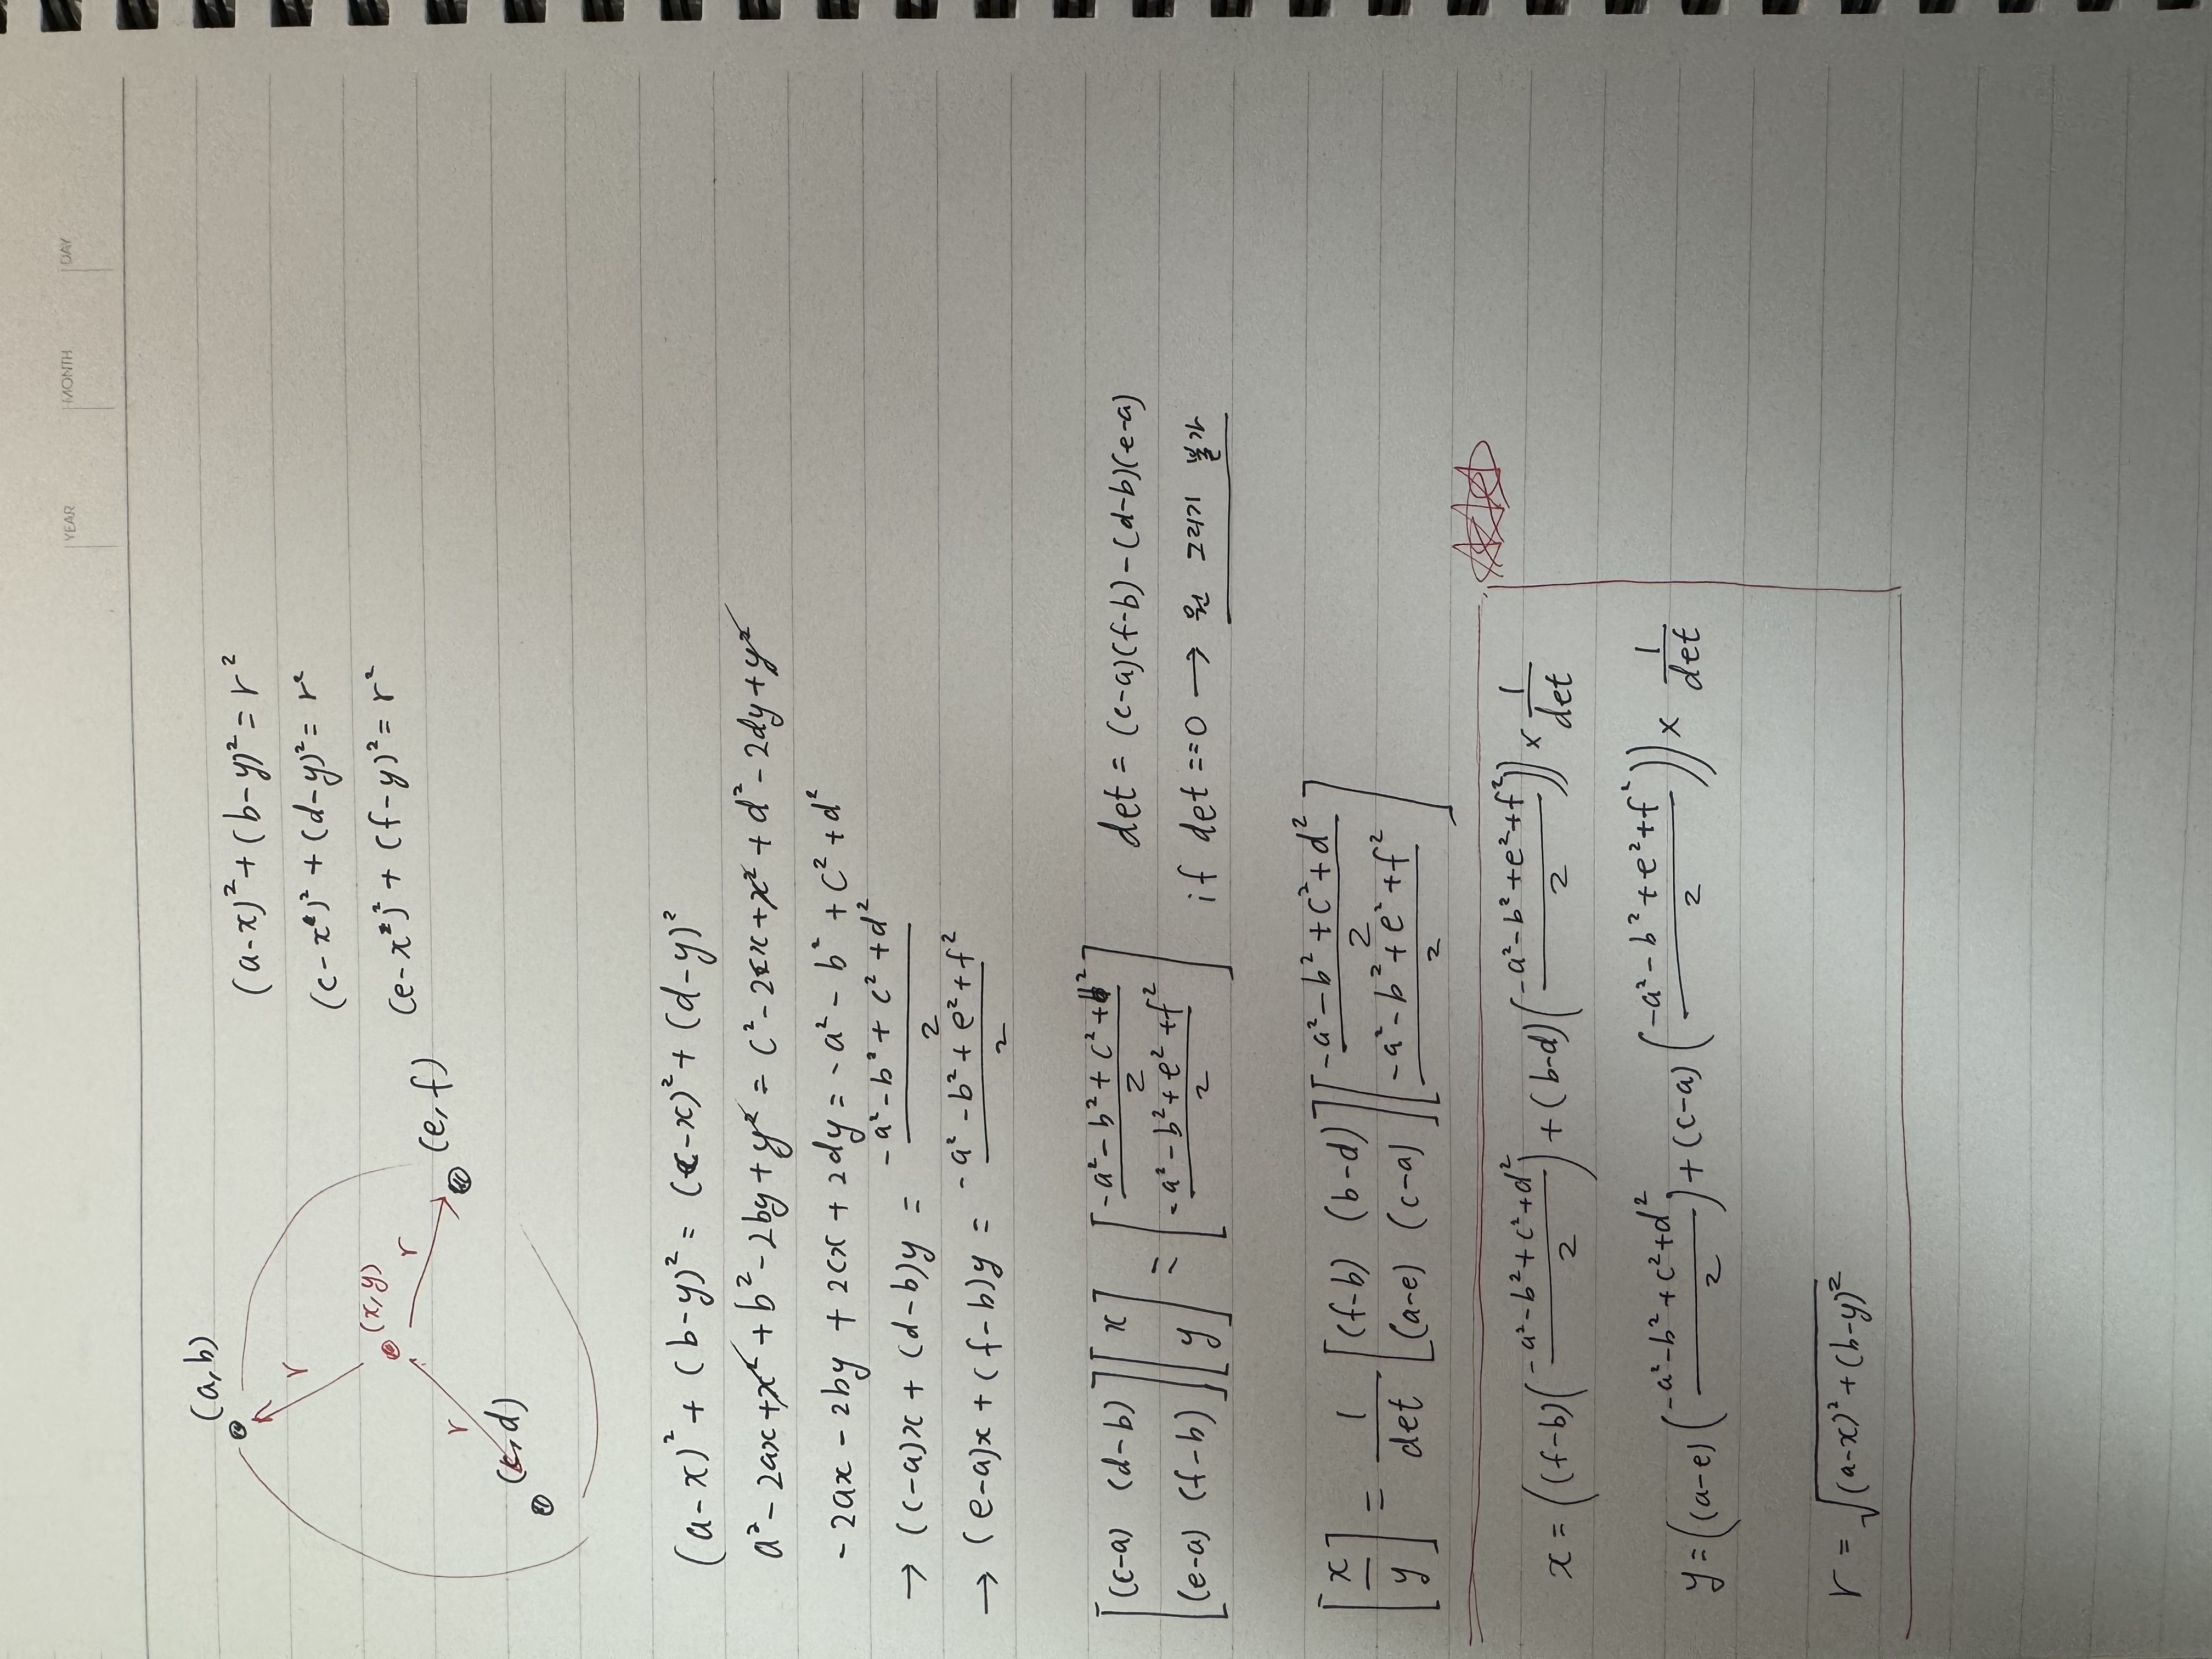 YEAR MONTH DAY
(a,b)
r
(x,y)
r
(e,f)
r
(c,d)
(a-x)² + (b-y)² = r²
(c-x)² + (d-y)² = r²
(e-x)² + (f-y)² = r²
(a-x)² + (b-y)² = (c-x)² + (d-y)²
a² - 2ax + x² + b² - 2by + y² = c² - 2cx + x² + d² - 2dy + y²
- 2ax - 2by + 2cx + 2dy = -a² - b² + c² + d²
→ (c-a)x + (d-b)y = (-a² - b² + c² + d²)/2
→ (e-a)x + (f-b)y = (-a² - b² + e² + f²)/2
[(c-a) (d-b); (e-a) (f-b)] [x; y] = [(-a² - b² + c² + d²)/2; (-a² - b² + e² + f²)/2]
det = (c-a)(f-b) - (d-b)(e-a)
if det == 0 → 원 그리기 불가
[x/y] = 1/det [(f-b) (b-d); (a-e) (c-a)] [(-a² - b² + c² + d²)/2; (-a² - b² + e² + f²)/2]
x = ((f-b)((-a² - b² + c² + d²)/2) + (b-d)((-a² - b² + e² + f²)/2)) × 1/det
y = ((a-e)((-a² - b² + c² + d²)/2) + (c-a)((-a² - b² + e² + f²)/2)) × 1/det
r = √((a-x)² + (b-y)²)